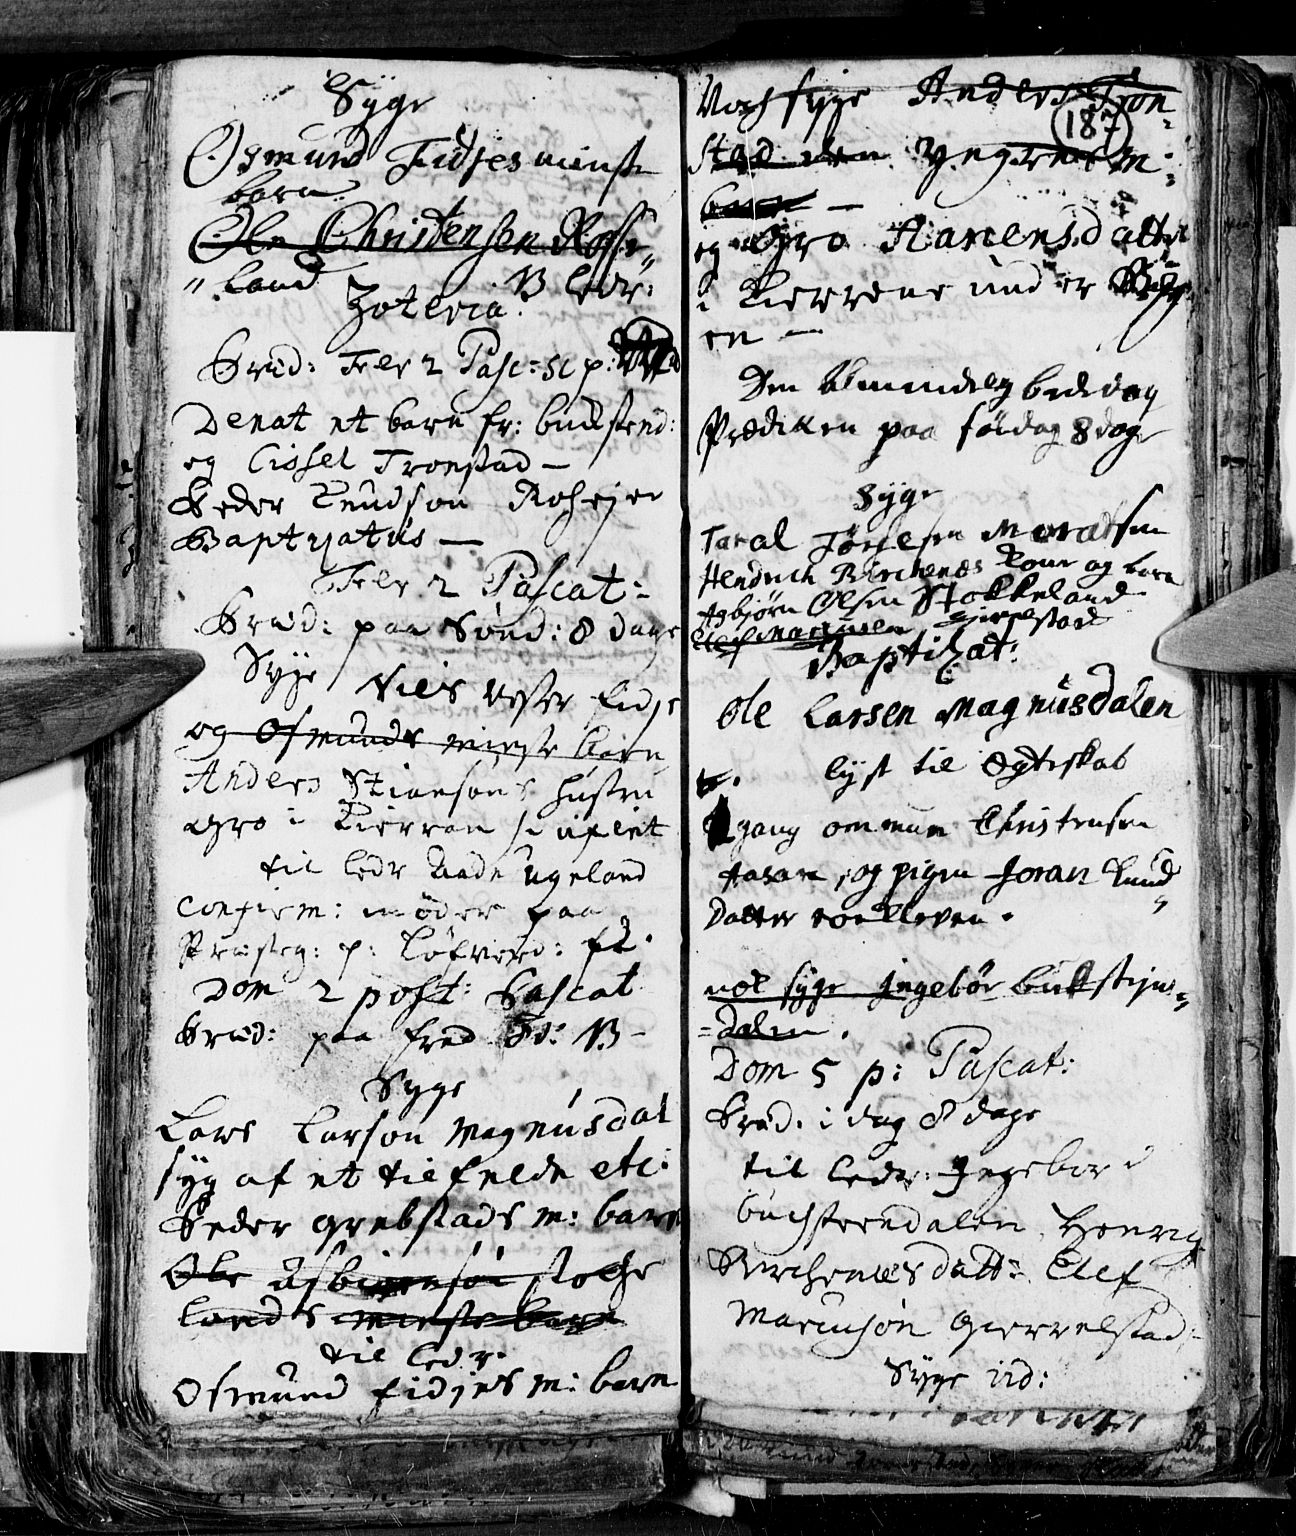 Syge
Osmund Fidjes minste
barn
Ole Christensen Rosse
land B ledr:
Zoteria.
Præd: Fer 2 Pasc: Sl p:
Denat et barn fr: buckstend:
og Cissel Tronstad —
Peder Knudson Rosejer
Baptizatus —
Fer 2 Pascat:
Præd: paa Sønd: 8 dage
Syge Niels Vester Fidje
og Osmunds minste barn
Anders Stiansons hustru
agro i Kierran
til ledr Aade Ugeland
Confirm: møder paa
Præsteg: p: Løfverd: ft.
Dom 2 post: Pascat
Præd: paa fred B —
Syge
Lars Larson Magnusdal
syg af et tilfelde etc:
Peder grebstads m: barn
Ole Asbiørnsøn stocke
lands minste barn
til ledr.
Osmund fidjes m: barn
Noch syge Anders Tron
187
stad den yngres m:
barn —
og agro Hansensdatter
i Kierrene under
en —
Den almindelig bededag
Prædiken paa føidag 8 dage
Syge
Taral Jørgesen
Hendrich Birckenes Kone og barn
Asbjørn Olsen Stokkeland
Elef Marcusen Gierelstad
Baptizat:
Ole Larsen Magnusdalen
lyst til Egteskab
gang ommun Christensen
Aasane, og pigen Joran Knud
Datter von Kleven.
nok syge Ingebor buckstejn
dalen.
Dom 5 p: Pascat:
Præd. i dag 8 dage
til ledr: Ingebor i
buchsteendalen, Henrig
Birchenæs datt: Elef
Marcusøn Gierrelstad
Syge iid: